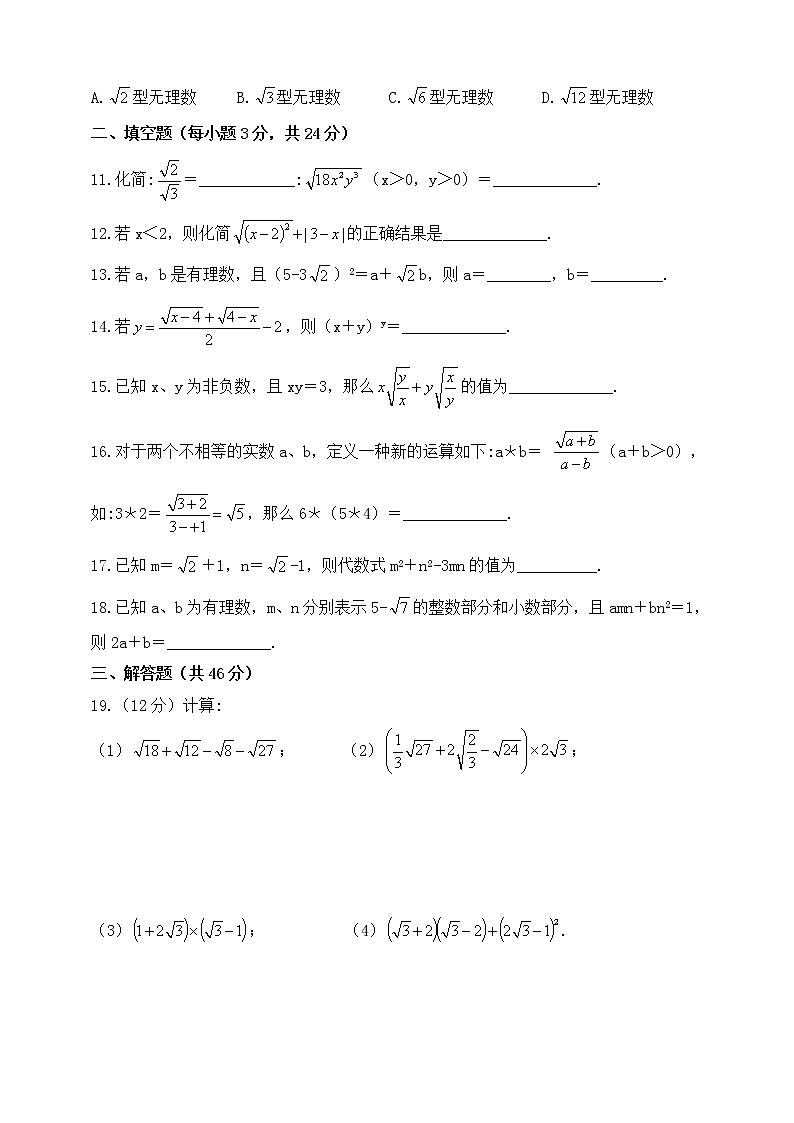 A.√2型无理数 B.√3型无理数 C.√6型无理数 D.√12型无理数
二、填空题(每小题3分，共24分)
11.化简:√2/√3=____________:√(18x²y³)(x>0,y>0)=_____________.
12.若x<2,则化简√((x-2)²)+|3-x|的正确结果是_____________.
13.若a，b是有理数，且(5-3√2)²=a+√2b,则a=________,b=_________.
14.若y=(√(x-4)+√(4-x))/2-2,则(x+y)ʸ=_____________.
15.已知x、y为非负数，且xy=3,那么x√(y/x)+y√(x/y)的值为_____________.
16.对于两个不相等的实数a、b,定义一种新的运算如下:a*b= √(a+b)/(a-b)(a+b>0),
如:3*2=√(3+2)/(3-+1)=√5,那么6*(5*4)=_____________.
17.已知m=√2+1,n=√2-1,则代数式m²+n²-3mn的值为__________.
18.已知a、b为有理数，m、n分别表示5-√7的整数部分和小数部分，且amn+bn²=1,
则2a+b=_____________.
三、解答题(共46分)
19.(12分)计算:
(1)√18+√12-√8-√27; (2)(1/3√27+2√(2/3)-√24)×2√3;
(3)(1+2√3)×(√3-1); (4)(√3+2)(√3-2)+(2√3-1)².